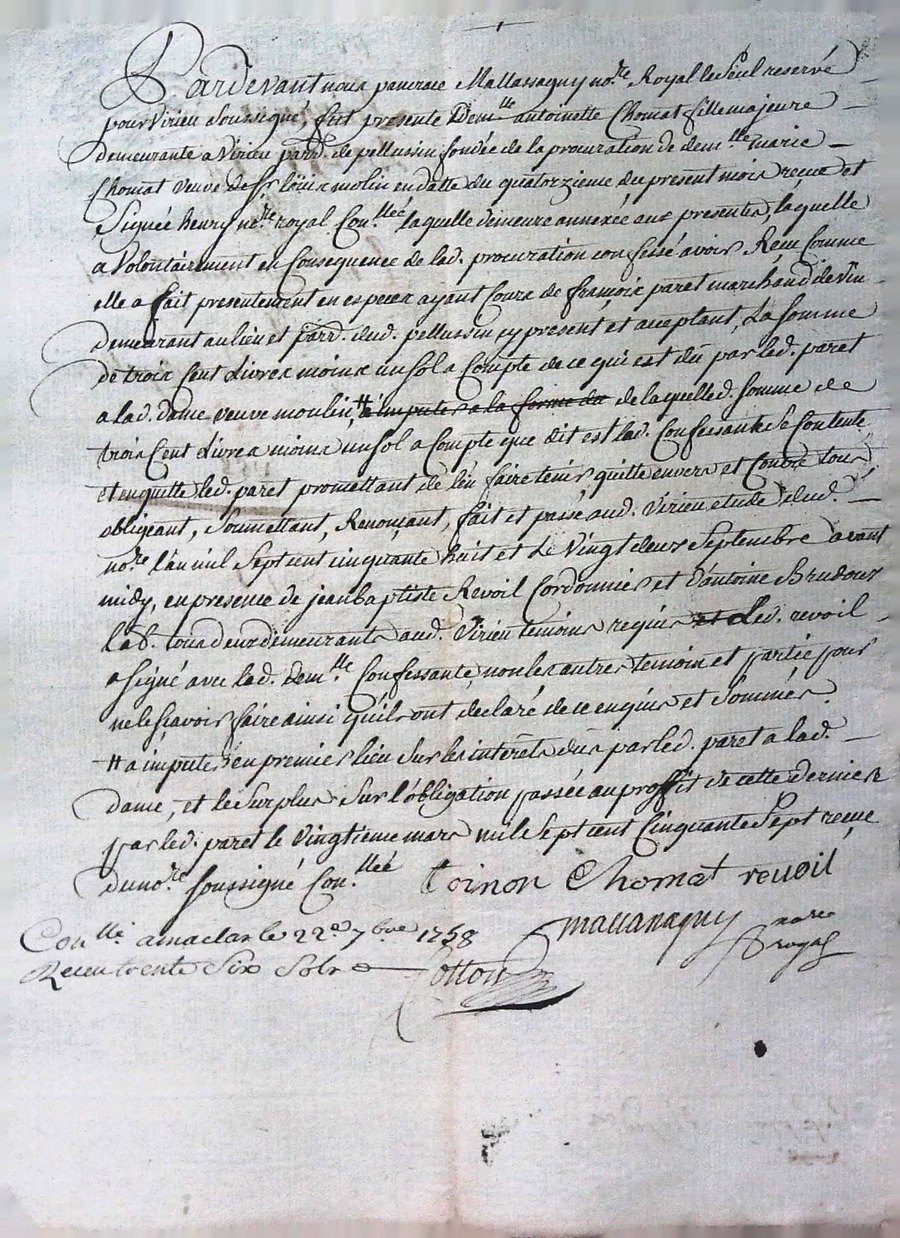 Pardevant nous pancrace Mallassagny no.re Royal le Seul reservé
pour Virieu Soussigné, fut presente Dem.lle antoinette Chomat fille majeure
demeurante a Virieu parr. de pellussin fondée de la procuration de dem.lle marie
Chomat veuve de Sr. loüis molin en datte du quatorzieme du present mois reçue et
Signée henry no.re royal Con.llée laquelle demeure annexée aux presentes, laquelle
a Volontairement en Consequence de lad. procuration confessé avoir Reçu Comme
elle a fait presentement en especes ayant Cours de françois paret marchand de vin
demeurant au lieu et parr. dud. pellussin cy present et acceptant, La Somme
de trois Cent Livres moins un Sol a Compte de ce qui est dû par led. paret
a lad. dame veuve moulin, # a imputer a la forme du de laquelle d. Somme de
trois Cent Livres moins un Sol a Compte que dit est lad. Confessante Se Contente
et en quitte led. paret promettant de l'en faire tenir quitte envers et Contre tous
obligeant, Soumettant, Renonçant, fait et passé aud. Virieu etude dud.
no.re l'an mil Sept cent cinquante huit et le vingt deux Septembre avant
midy, en presence de jean baptiste Revoil Cordonnier et d'antoine Brudoux
lab. tous deux demeurants aud. Virieu temoins requis et led. revoil
a Signé avec lad. dem.lle Confessante non les autres temoin et partie pour
ne le sçavoir faire ainsi qu'ils ont declaré de ce enquis et Sommés.
# a imputer en premier lieu Sur les interêts dus par led. paret a lad.
dame, et le Surplus Sur l'obligation passée au proffit de cette derniere
par led. paret le vingtieme mars mil Sept cent Cinquante Sept reçue
du no.re Soussigné Con.llée toinon Chomat revoil
Con.llé a maclas le 22e 7bre 1758 mallassagny no.re
Reçu trente Six Sols Cotton royal